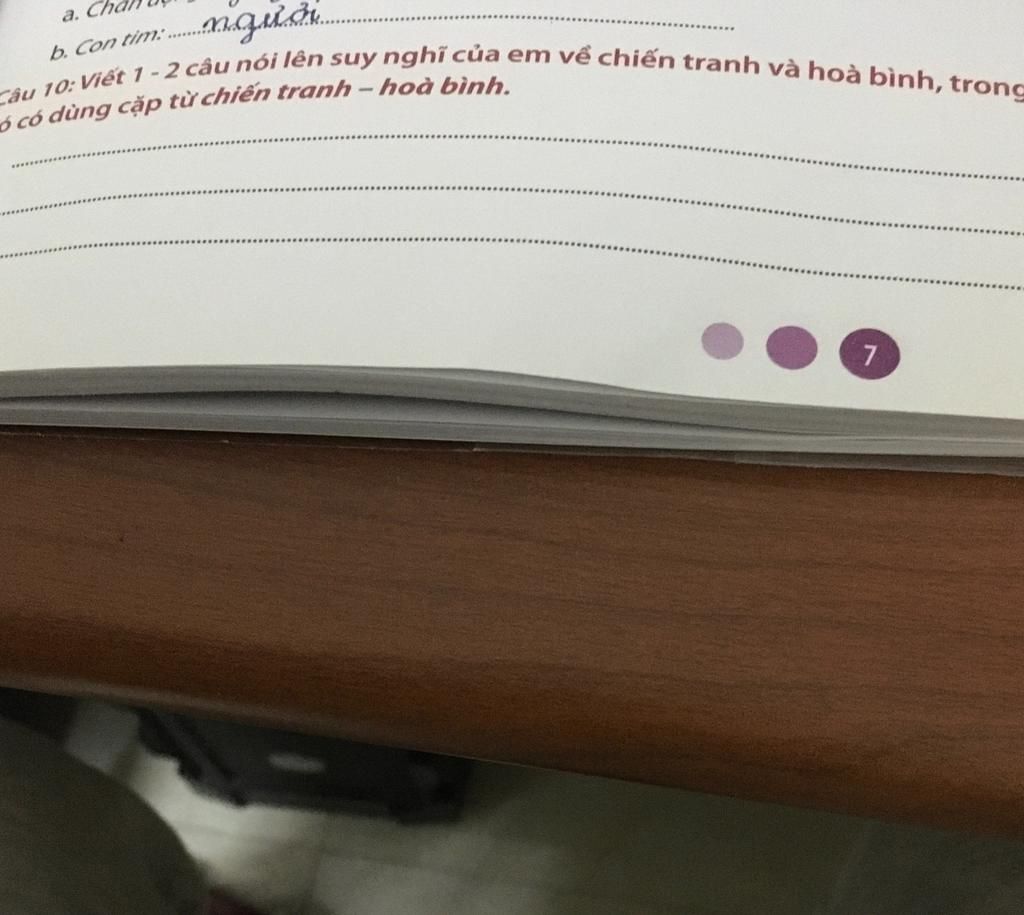 a. Chân
b. Con tim: người
Câu 10: Viết 1 - 2 câu nói lên suy nghĩ của em về chiến tranh và hoà bình, trong
ó có dùng cặp từ chiến tranh – hoà bình.
7